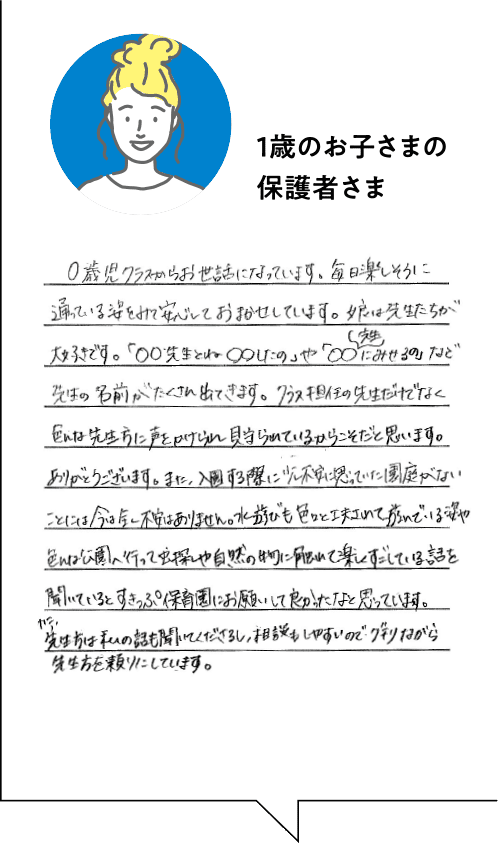 1歳のお子さまの
保護者さま
0歳児クラスからお世話になっています。毎日楽しそうに
通っている姿をみて安心しておまかせしています。娘は先生たちが
大好きです。「〇〇先生とね〇〇したの」や「〇〇先生にみせるの」など
先生の名前がたくさん出てきます。クラス担任の先生だけでなく
色んな先生方に声をかけられ見守られているからこそだと思います。
ありがとうございます。また、入園する際に少し不安に思っていた園庭がない
ことには今は全く不安はありません。水遊びも色々と工夫されて遊んでいる姿や
色んな公園へ行って虫探しや自然の物に触れて楽しくすごしている話を
聞いているとすきっぷ保育園にお願いして良かったなと思っています。
先生方は私の話も聞いてくださるし、相談もしやすいのでグチりながら
先生方を頼りにしています。